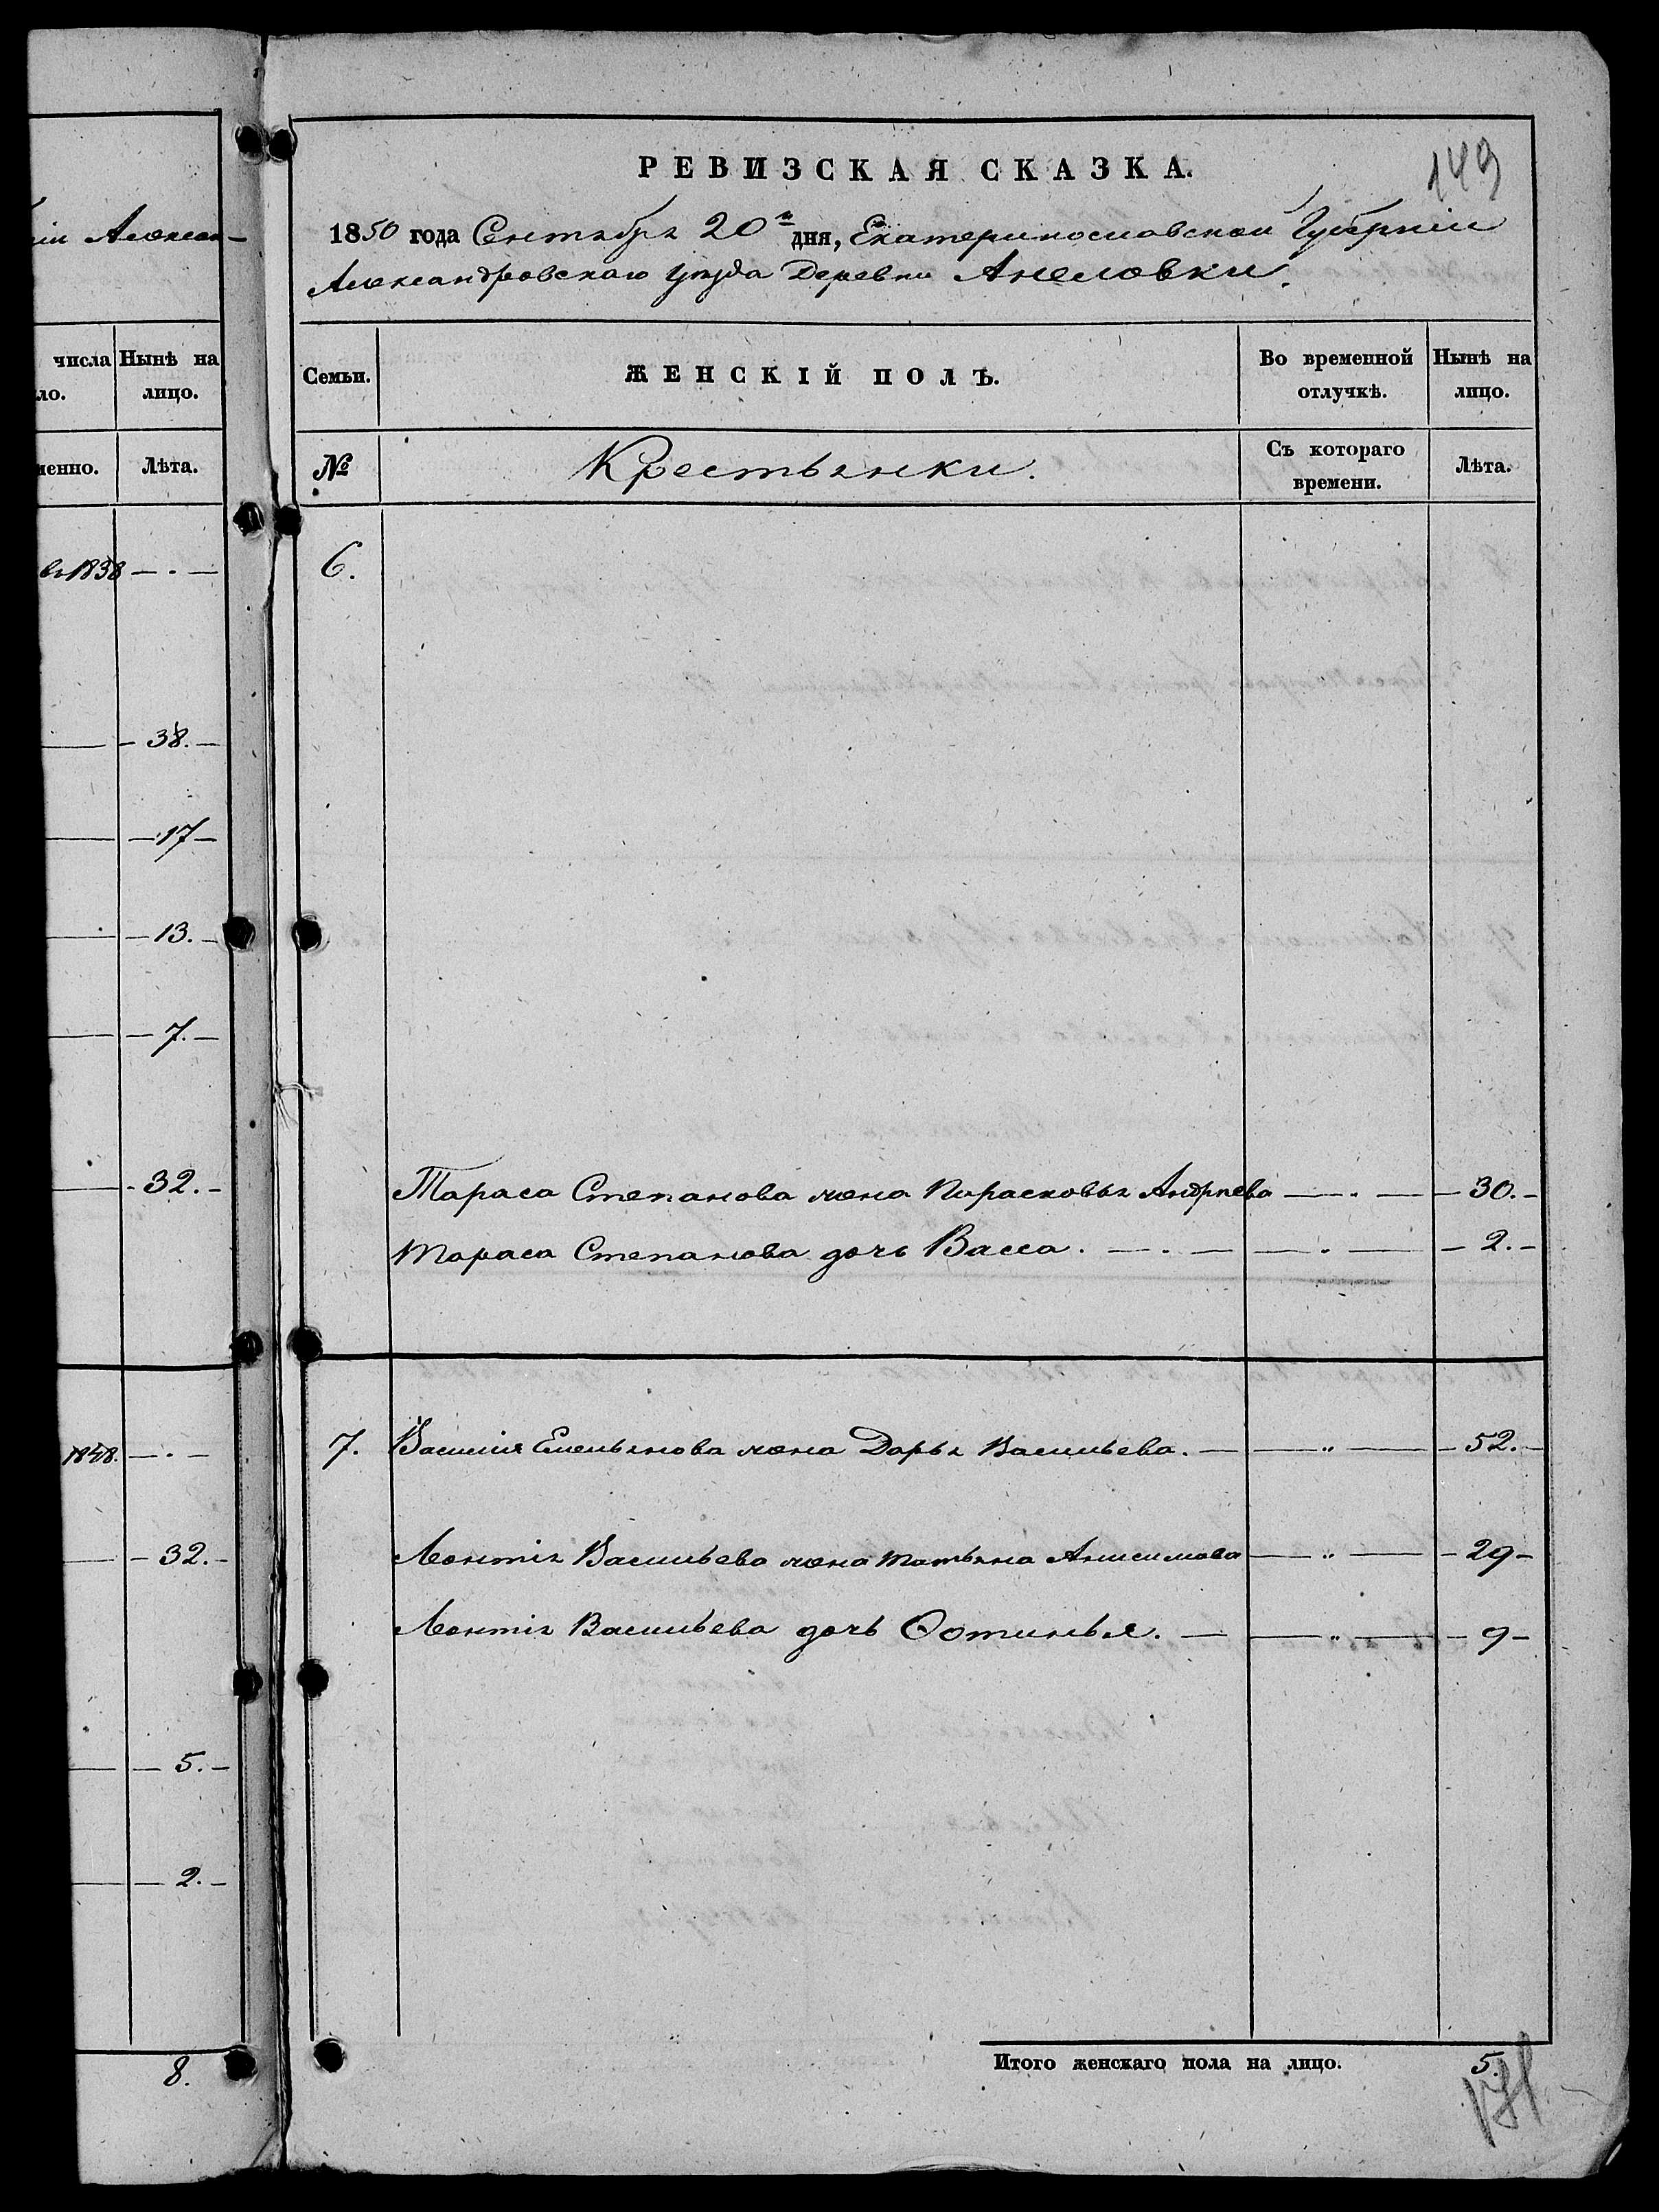 ніи Алексан-
числа Нынѣ на
ло. лицо.
менно. Лѣта.
въ 1838 — . —
— 38. —
— 17 —
— 13. —
— 7. —
— 32. —
1848. — . —
— 32. —
— 5. —
— 2. —
8.
149
РЕВИЗСКАЯ СКАЗКА.
1850 года Сентября 20го дня, Екатеринославской Губерніи
Александровскаго уѣзда Деревни Анеловки.
Семьи. ЖЕНСКІЙ ПОЛЪ. Во временной отлучкѣ. Нынѣ на лицо.
№ Крестьянки. Съ котораго времени. Лѣта.
6.
Тараса Степанова жена Парасковья Андрѣева — . — 30. —
Тараса Степанова дочь Васса. — . — — . — 2. —
7. Василія Емельянова жена Дарья Васильева. — — „ — 52. —
Леонтія Васильева жена Татьяна Анисимова — „ — 29 —
Леонтія Васильева дочь Ѳотинья. — — „ — 9 —
Итого женскаго пола на лицо. 5.